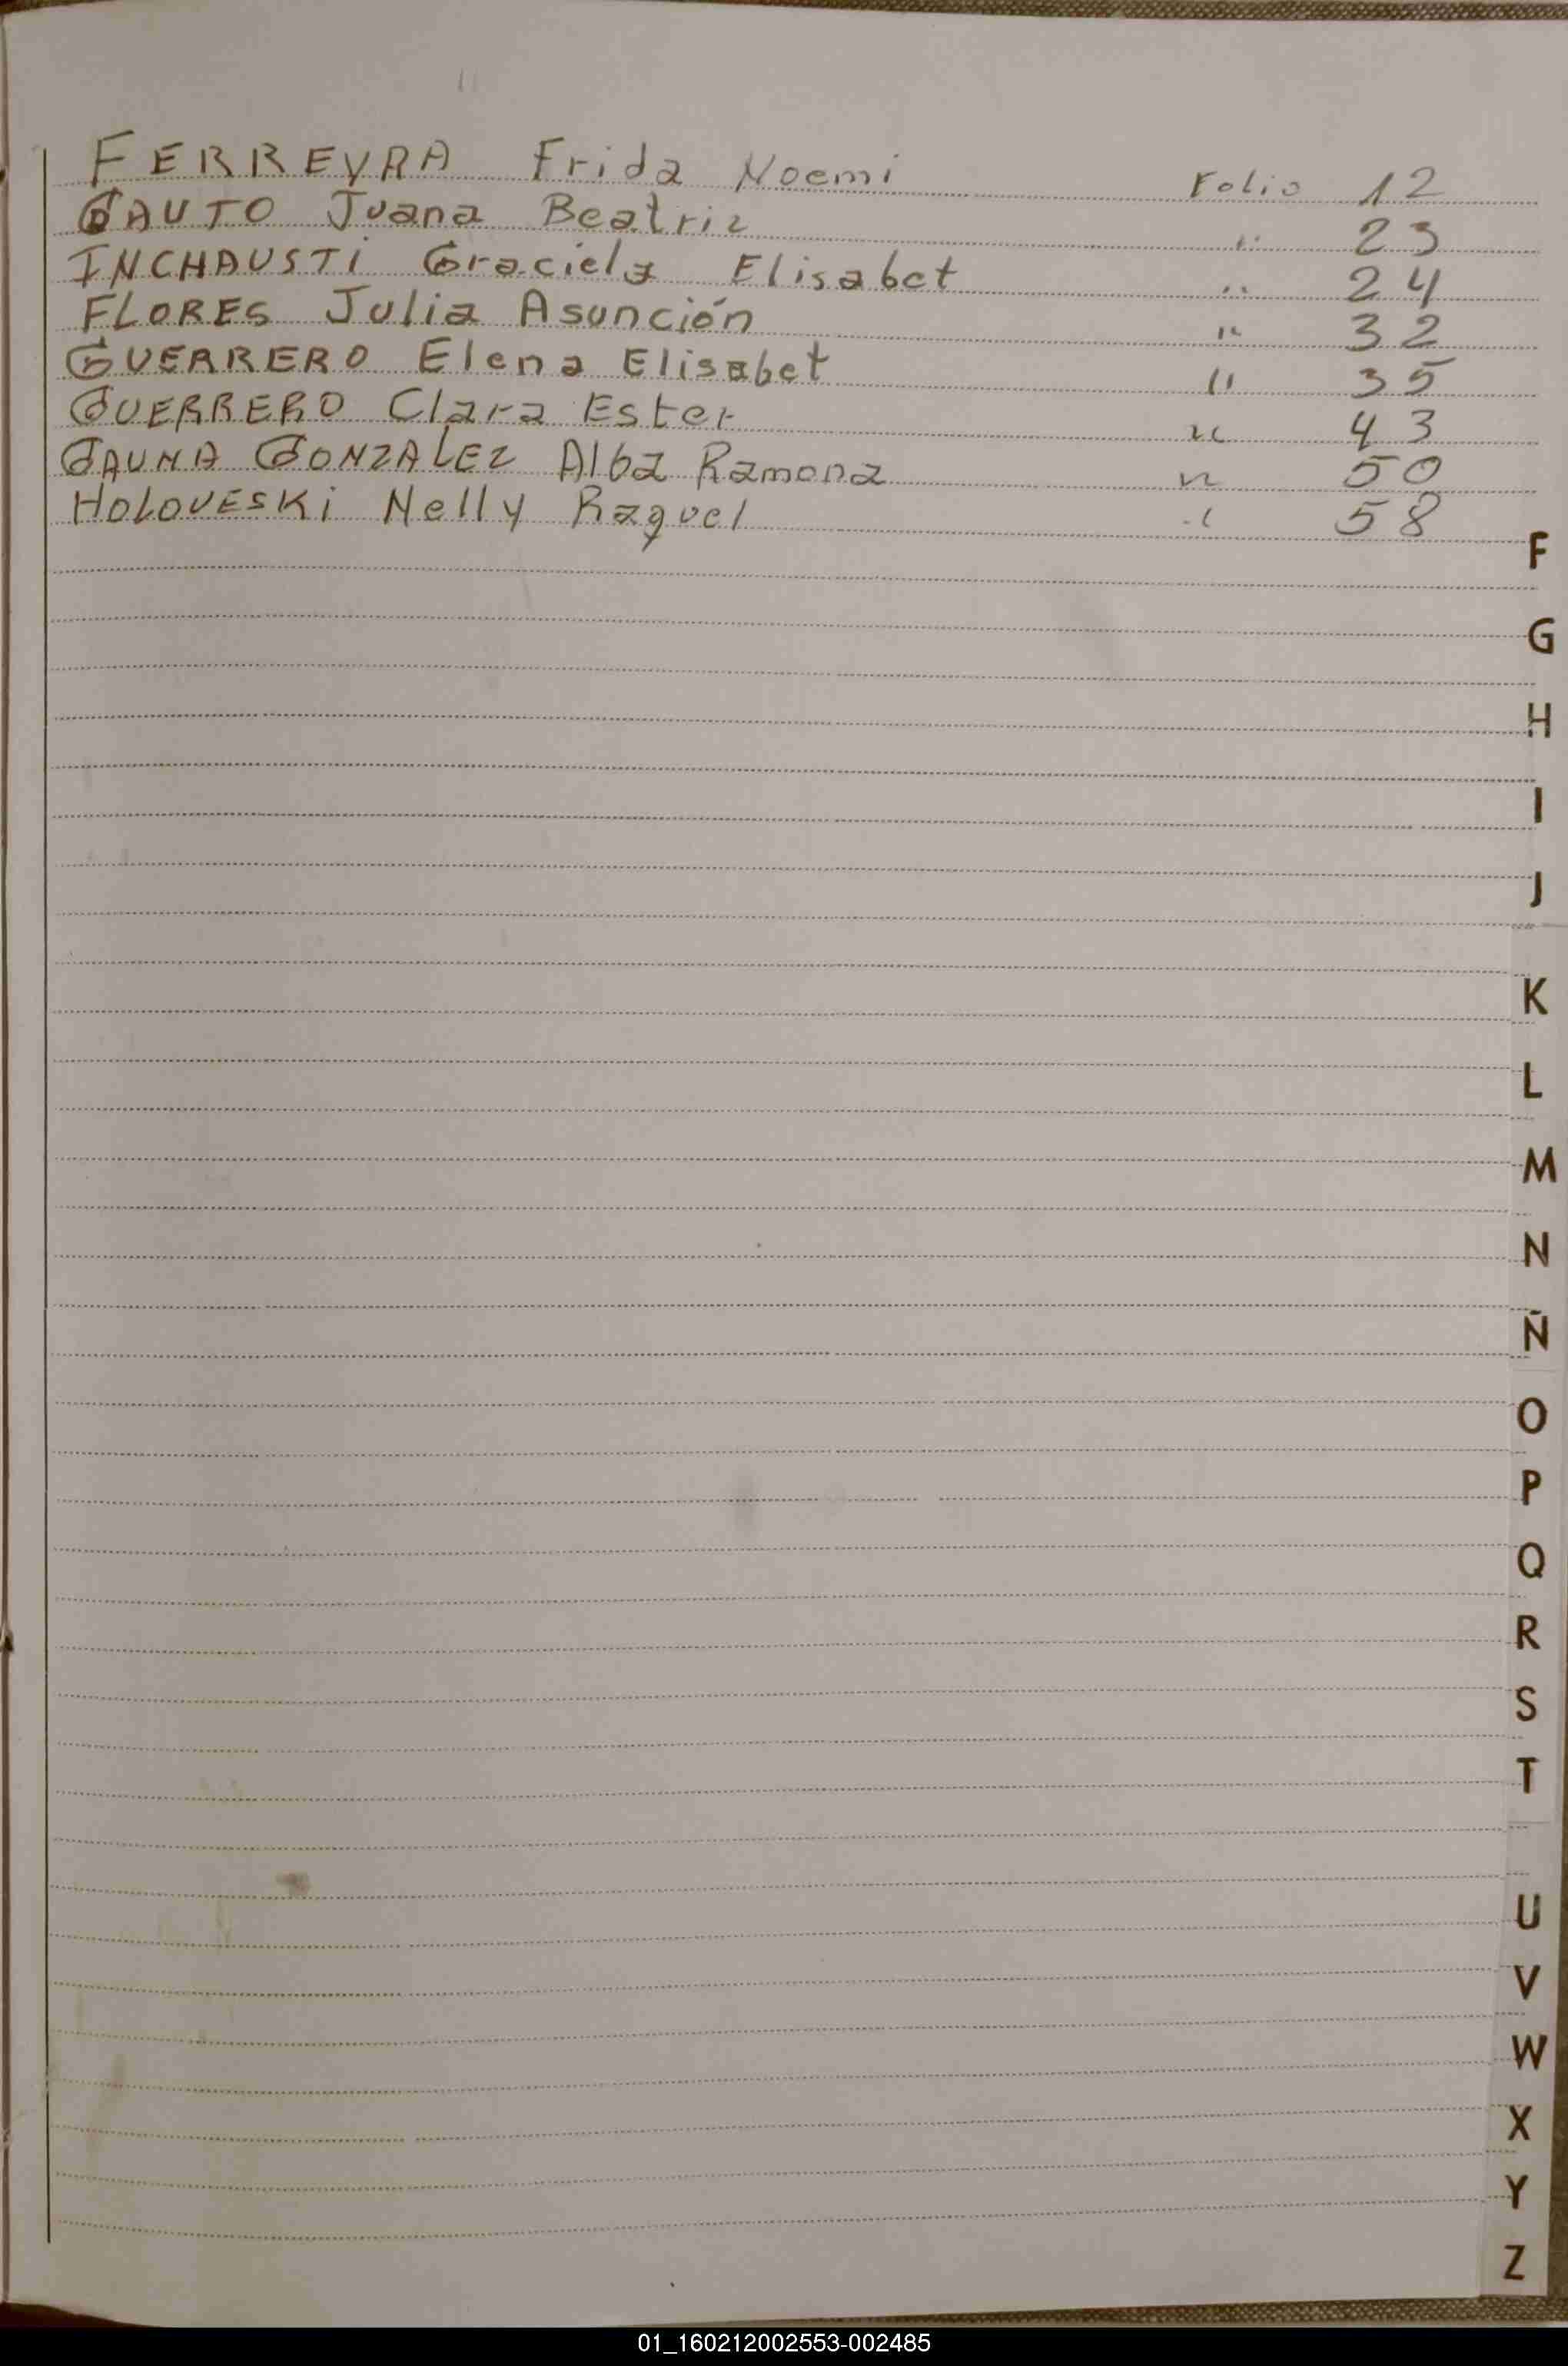 FERREYRA Frida Noemi Folio 12
GAUTO Juana Beatriz " 23
INCHAUSTi Graciela Elisabet " 24
FLORES Julia Asunción " 32
GUERRERO Elena Elisabet " 35
GUERRERO Clara Ester " 43
GAUNA GONZALEZ Alba Ramona " 50
HOLOVESKi Nelly Raquel " 58
F
G
H
I
J
K
L
M
N
Ñ
O
P
Q
R
S
T
U
V
W
X
Y
Z
01_160212002553-002485